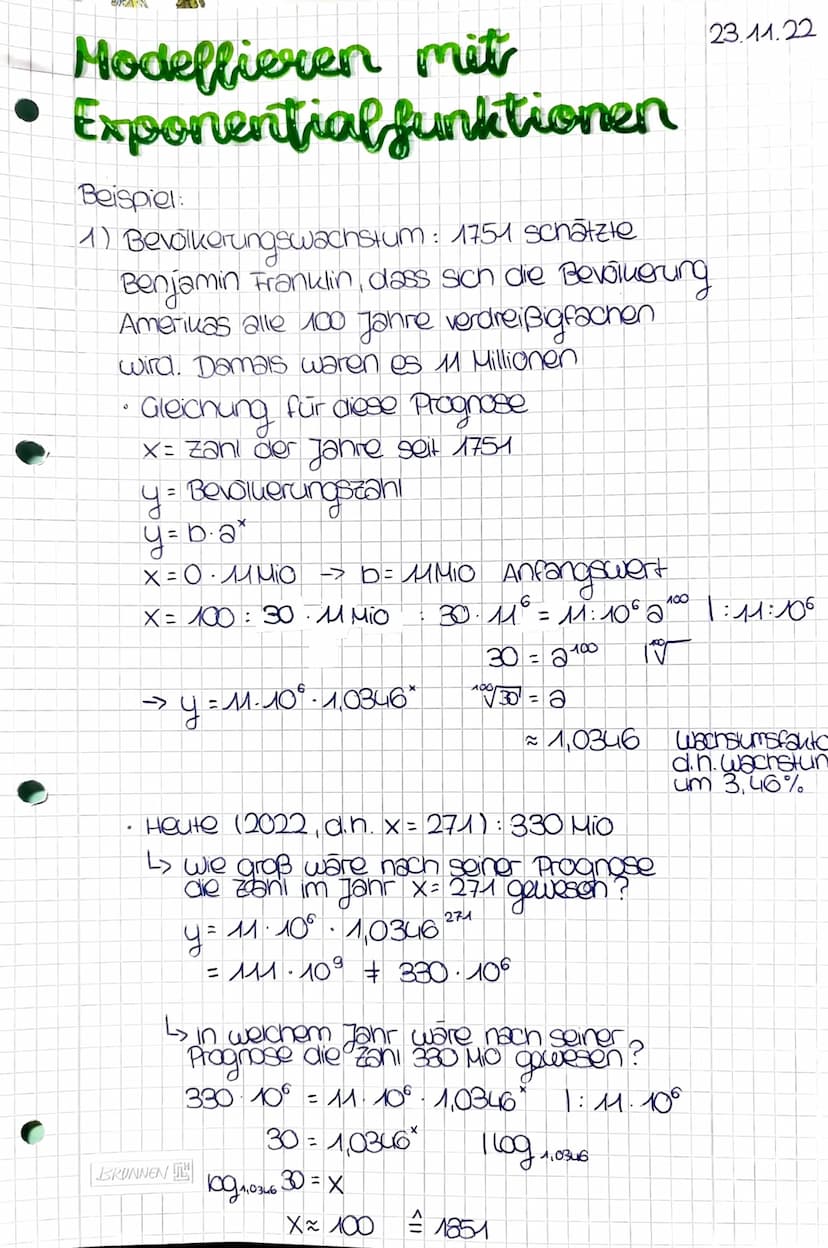 23.11.22
Modellieren mit
Exponentialfunktionen
Beispiel:
1) Bevölkerungswachstum: 1751 schätzte
Benjamin Franklin, dass sich die Bevölkerung
Amerikas alle 100 Jahre verdreißigfachen
wird. Damals waren es 11 Millionen
· Gleichung für diese Prognose
x = Zahl der Jahre seit 1751
y = Bevölkerungszahl
y = b · a^x
x = 0 · 11 Mio → b = 11 Mio Anfangswert
x = 100 : 30 · 11 Mio : 30 · 11^6 = 11 : 10^6 a^100 | : 11 : 10^6
30 = a^100 | ¹⁰⁰√
→ y = 11 · 10^6 · 1,0346^x ¹⁰⁰√30 = a
≈ 1,0346 Wachsumsfakto
d.h. Wachstum
um 3,46%
· Heute (2022, d.h. x = 271) : 330 Mio
↳ Wie groß wäre nach seiner Prognose
die Zahl im Jahr x = 271 gewesen?
y = 11 · 10^6 · 1,0346^271
= 111 · 10^9 ≠ 330 · 10^6
↳ in welchem Jahr wäre nach seiner
Prognose die Zahl 330 Mio gewesen?
330 · 10^6 = 11 · 10^6 · 1,0346^x | : 11 · 10^6
30 = 1,0346^x | log 1,0346
BRUNNEN
log 1,0346 30 = x
x ≈ 100 ≙ 1851